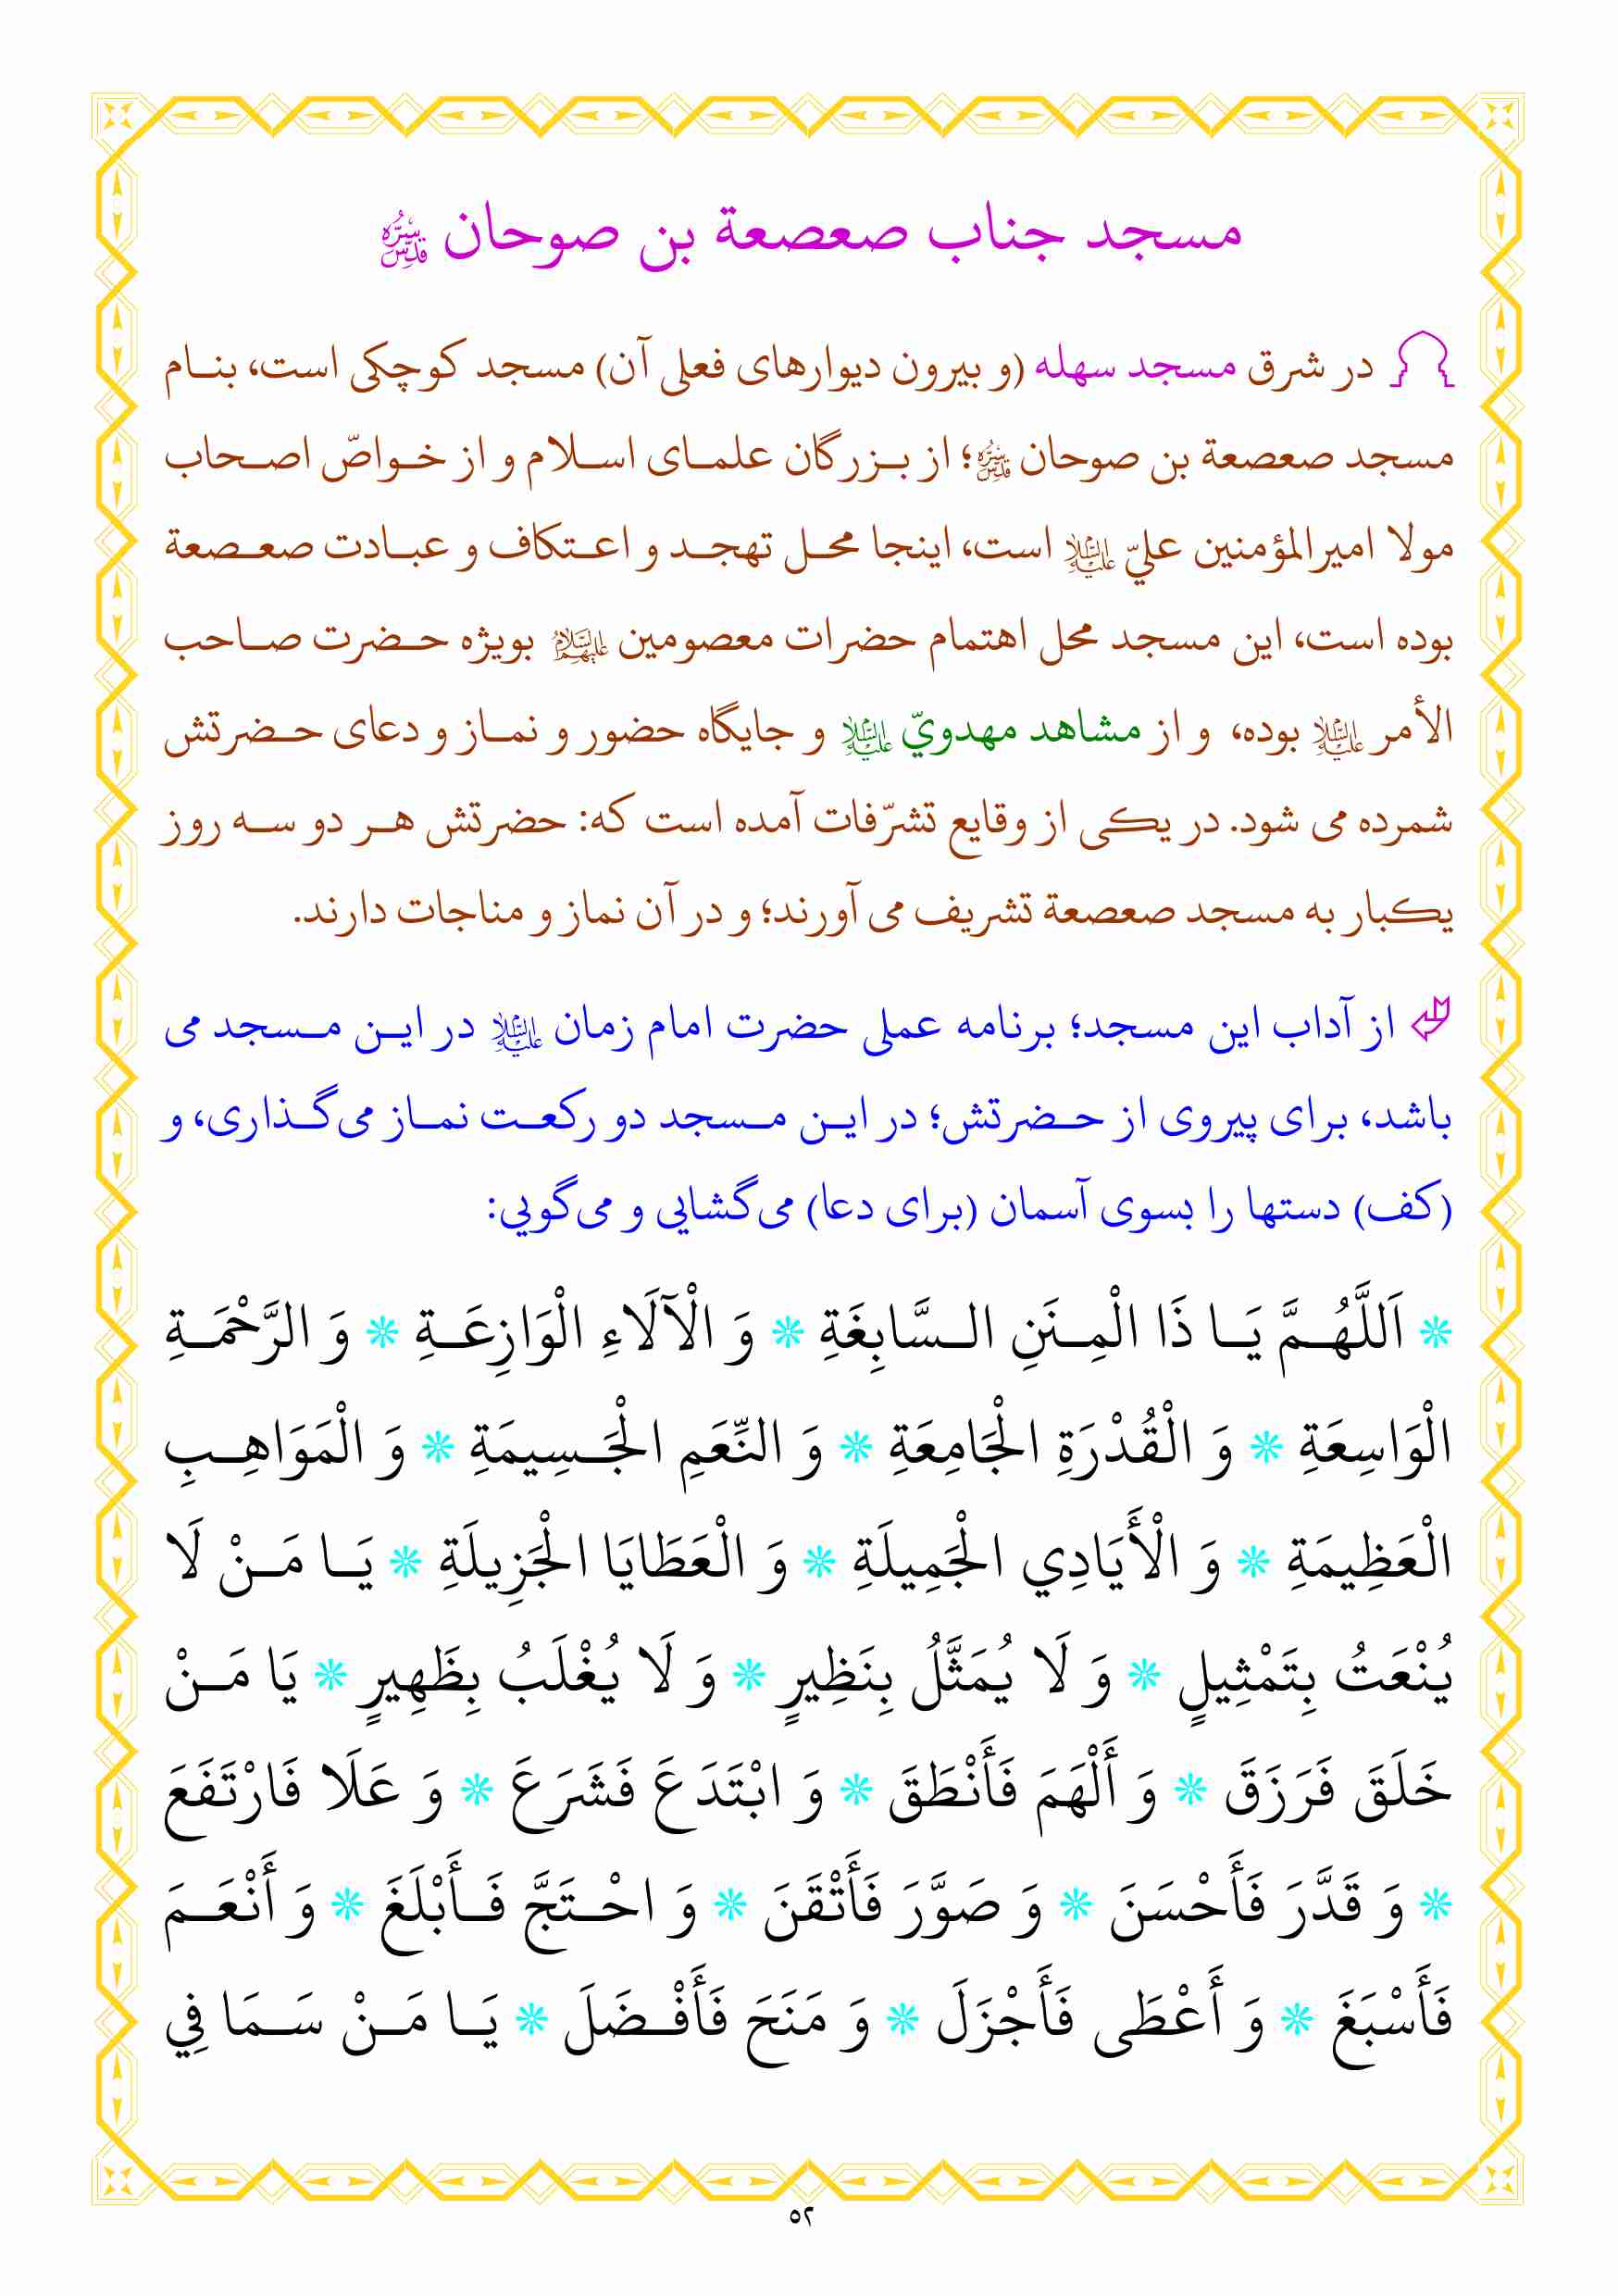 مسجد جناب صعصعة بن صوحان قدّس سرّه
در شرق مسجد سهله (و بیرون دیوارهای فعلی آن) مسجد کوچکی است، بنام
مسجد صعصعة بن صوحان قدّس سرّه؛ از بزرگان علمای اسلام و از خواصّ اصحاب
مولا امیرالمؤمنین عليّ علیه السلام است، اینجا محل تهجد و اعتکاف و عبادت صعصعة
بوده است، این مسجد محل اهتمام حضرات معصومین علیهم السلام بویژه حضرت صاحب
الأمر علیه السلام بوده، و از مشاهد مهدويّ علیه السلام و جایگاه حضور و نماز و دعای حضرتش
شمرده می شود. در یکی از وقایع تشرّفات آمده است که: حضرتش هر دو سه روز
یکبار به مسجد صعصعة تشریف می آورند؛ و در آن نماز و مناجات دارند.
از آداب این مسجد؛ برنامه عملی حضرت امام زمان علیه السلام در این مسجد می
باشد، برای پیروی از حضرتش؛ در این مسجد دو رکعت نماز می‌گذاری، و
(کف) دستها را بسوی آسمان (برای دعا) می‌گشایی و می‌گویی:
* اَللَّهُمَّ يَا ذَا الْمِنَنِ السَّابِغَةِ * وَ الْآلَاءِ الْوَازِعَةِ * وَ الرَّحْمَةِ
الْوَاسِعَةِ * وَ الْقُدْرَةِ الْجَامِعَةِ * وَ النِّعَمِ الْجَسِيمَةِ * وَ الْمَوَاهِبِ
الْعَظِيمَةِ * وَ الْأَيَادِي الْجَمِيلَةِ * وَ الْعَطَايَا الْجَزِيلَةِ * يَا مَنْ لَا
يُنْعَتُ بِتَمْثِيلٍ * وَ لَا يُمَثَّلُ بِنَظِيرٍ * وَ لَا يُغْلَبُ بِظَهِيرٍ * يَا مَنْ
خَلَقَ فَرَزَقَ * وَ أَلْهَمَ فَأَنْطَقَ * وَ ابْتَدَعَ فَشَرَعَ * وَ عَلَا فَارْتَفَعَ
* وَ قَدَّرَ فَأَحْسَنَ * وَ صَوَّرَ فَأَتْقَنَ * وَ احْتَجَّ فَأَبْلَغَ * وَ أَنْعَمَ
فَأَسْبَغَ * وَ أَعْطَى فَأَجْزَلَ * وَ مَنَحَ فَأَفْضَلَ * يَا مَنْ سَمَا فِي
٥٢